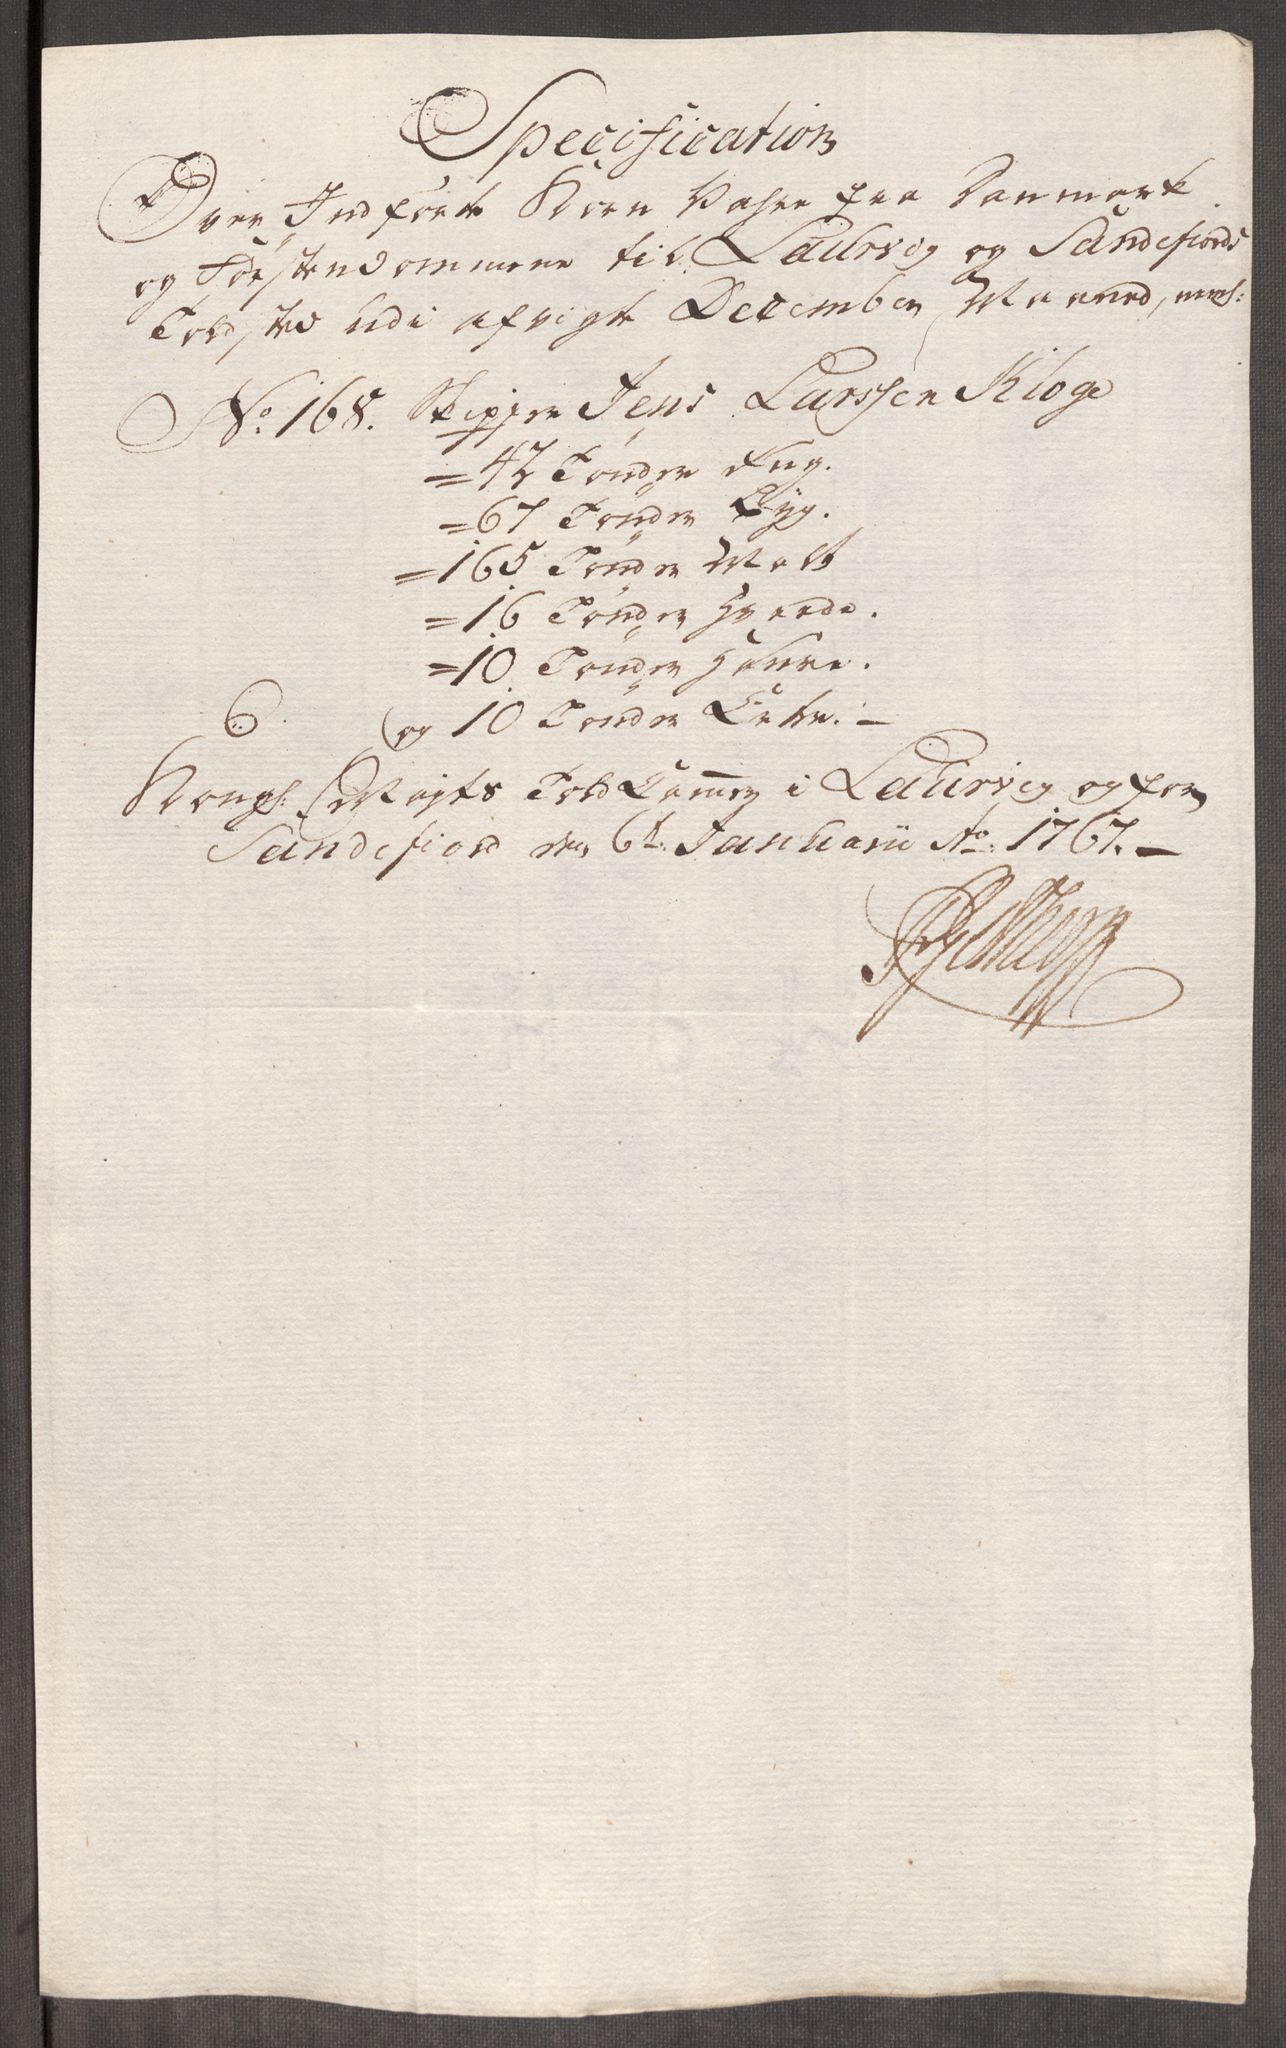 Specification
Over Indförte Korn Vahre fra Danmark
og Förstendommene til Laurvig og Sandefiords
Toldsted udi afvigte December Maaned, neml:
No. 168. Skipper Jens Larssen Kloge
= 42 Tönder Rug.
= 67 Tönder Byg.
= 165 Tönder Malt
= 16 Tönder Hvede.
= 10 Tönder Hafre.
og 10 Tönder Erter. —
Kongl. Mayts Told Cammer i Laurvig og for
Sandefiord den 6t. Januarii Ao. 1767. —